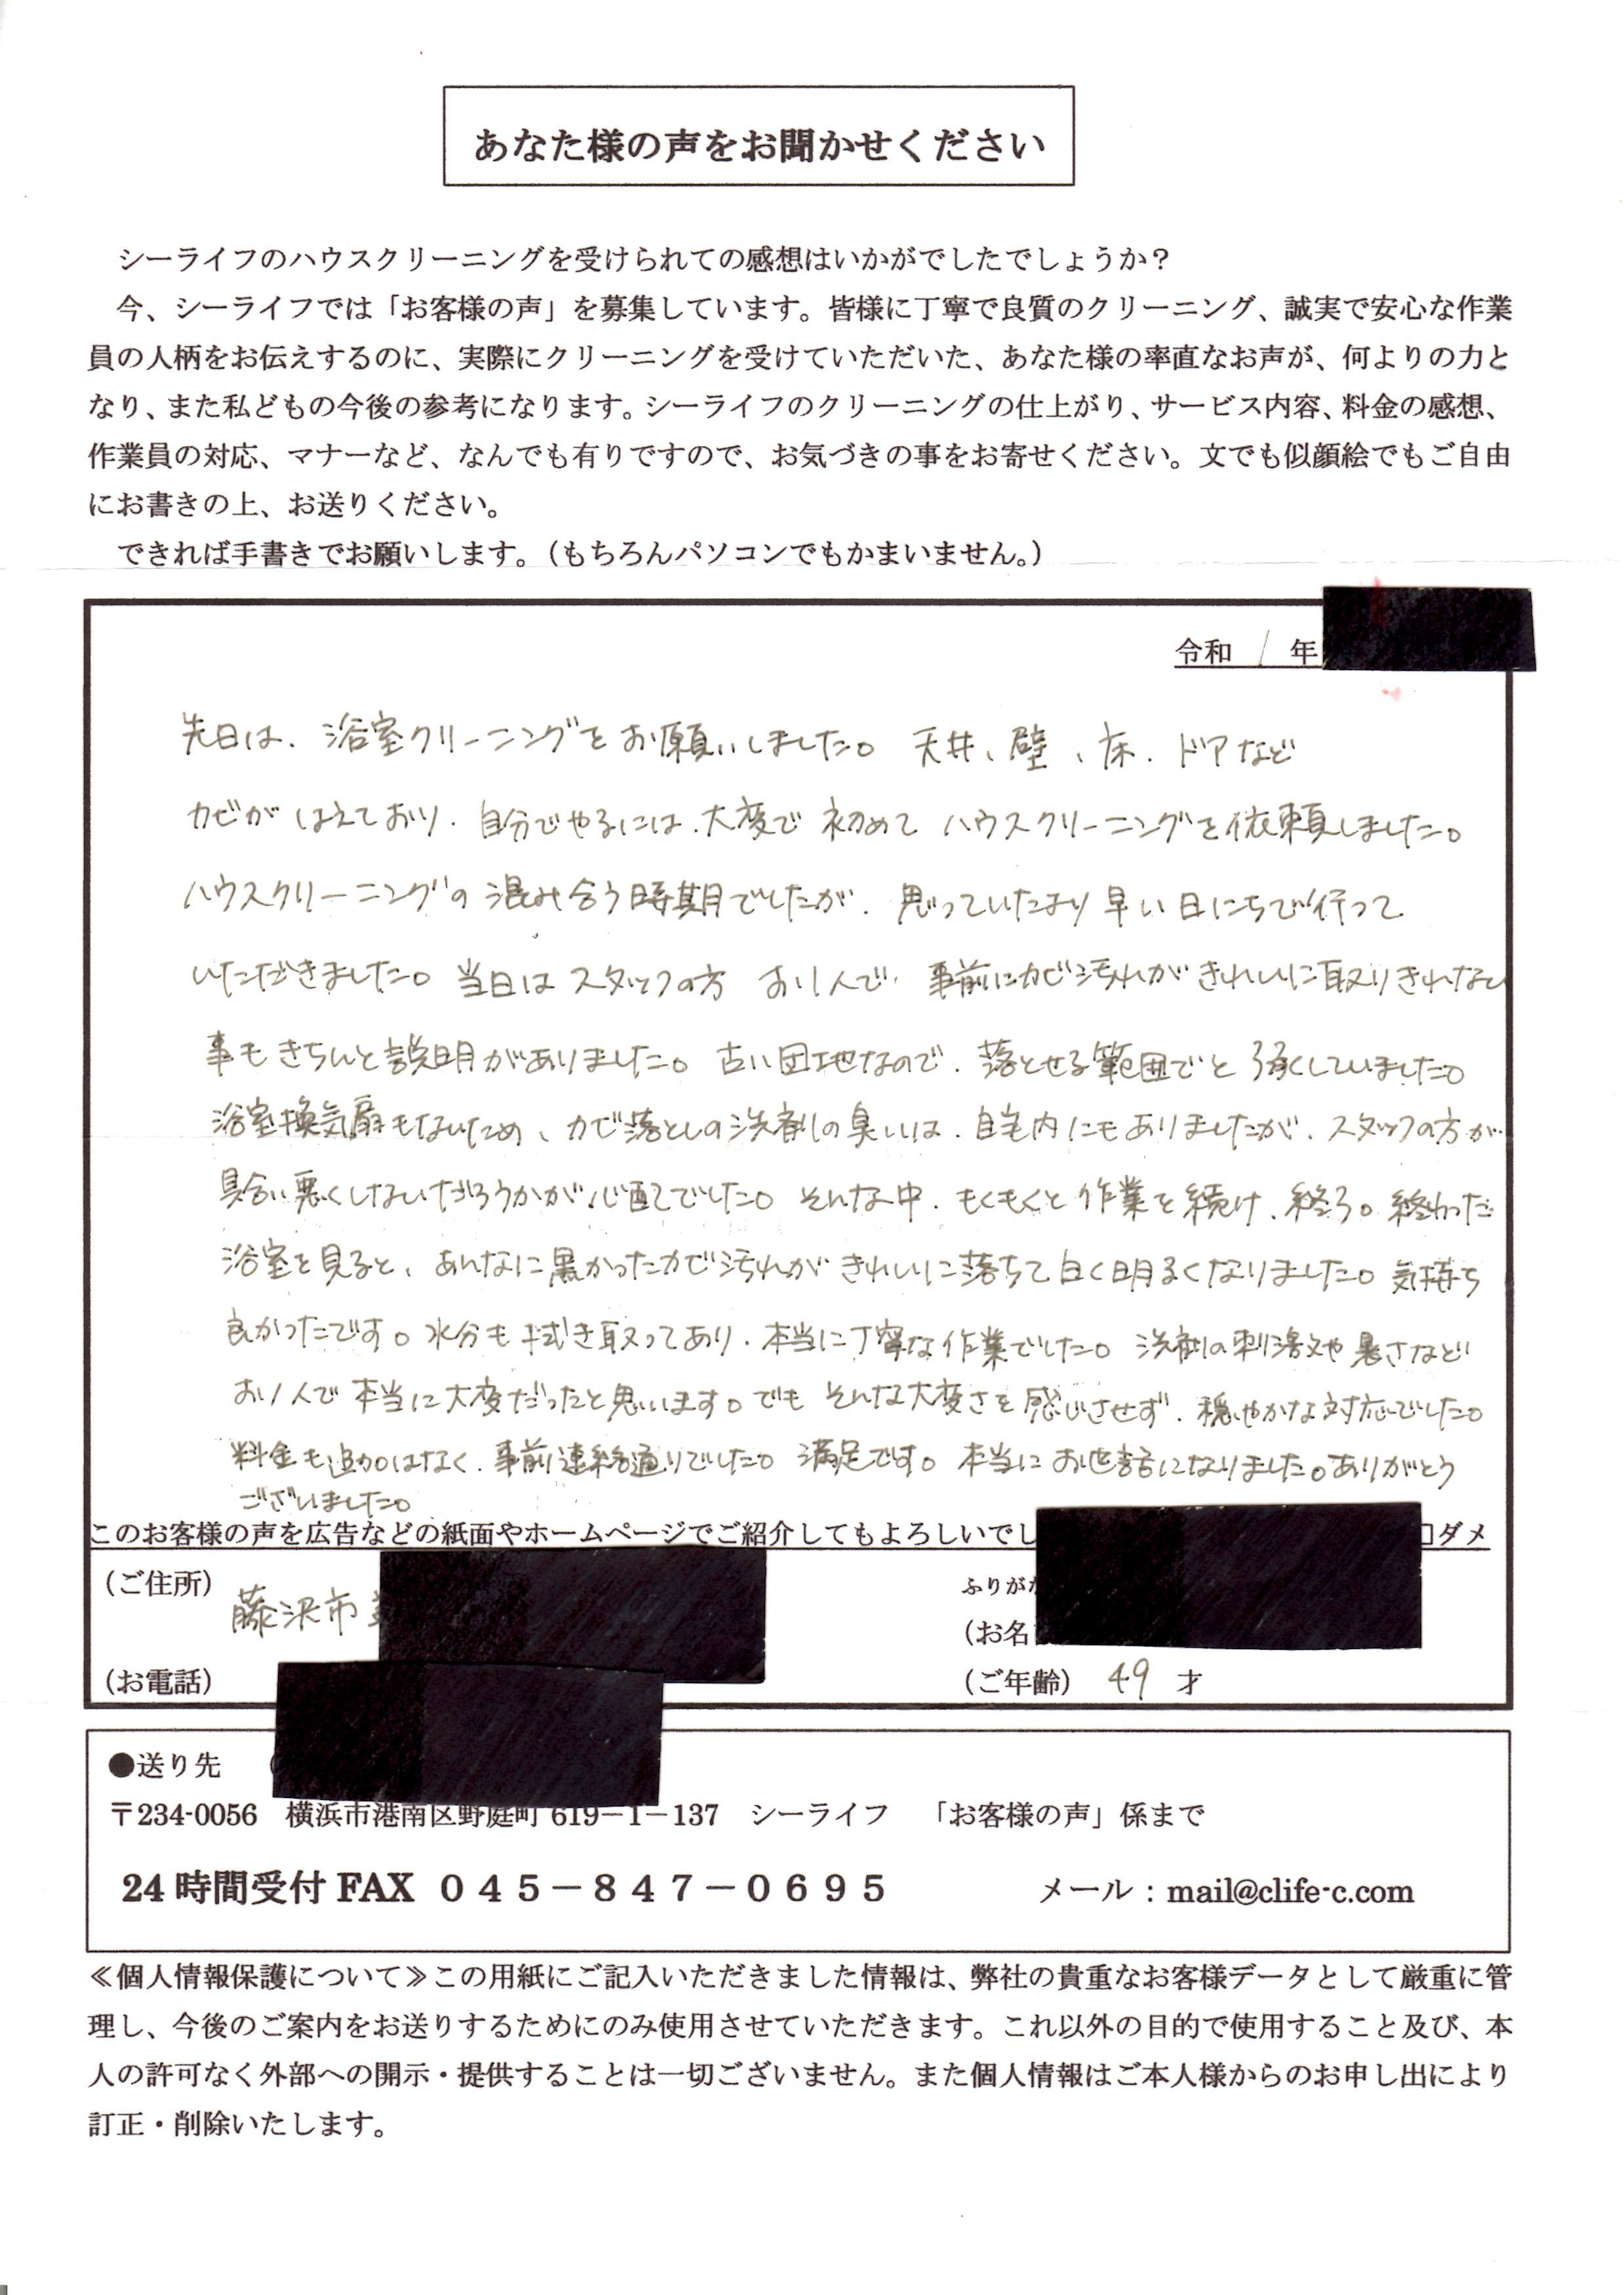 あなた様の声をお聞かせください
シーライフのハウスクリーニングを受けられての感想はいかがでしたでしょうか？
今、シーライフでは「お客様の声」を募集しています。皆様に丁寧で良質のクリーニング、誠実で安心な作業
員の人柄をお伝えするのに、実際にクリーニングを受けていただいた、あなた様の率直なお声が、何よりの力と
なり、また私どもの今後の参考になります。シーライフのクリーニングの仕上がり、サービス内容、料金の感想、
作業員の対応、マナーなど、なんでも有りですので、お気づきの事をお寄せください。文でも似顔絵でもご自由
にお書きの上、お送りください。
できれば手書きでお願いします。（もちろんパソコンでもかまいません。）
令和 1 年
先日は、浴室クリーニングをお願いしました。天井、壁、床、ドアなど
カビがはえており、自分でやるには、大変で初めてハウスクリーニングを依頼しました。
ハウスクリーニングの混み合う時期でしたが、思っていたより早い日にちで行って
いただきました。当日はスタッフの方お1人で、事前にカビ汚れがきれいに取りきれない
事もきちんと説明がありました。古い団地なので、落とせる範囲でと了承していました。
浴室換気扇もないため、カビ落としの洗剤の臭いは、自宅内にもありましたが、スタッフの方が
具合い悪くしないだろうかが心配でした。そんな中、もくもくと作業を続け、終了。終わった
浴室を見ると、あんなに黒かったカビ汚れがきれいに落ちて白く明るくなりました。気持ち
良かったです。水分も拭き取ってあり、本当に丁寧な作業でした。洗剤の刺激や暑さなど
お1人で本当に大変だったと思います。でもそんな大変さを感じさせず、穏やかな対応でした。
料金も追加はなく、事前連絡通りでした。満足です。本当にお世話になりました。ありがとう
ございました。
このお客様の声を広告などの紙面やホームページでご紹介してもよろしいでし ダメ
（ご住所） 藤沢市
ふりがな
（お名
（お電話）
（ご年齢） 49 才
●送り先
〒234-0056 横浜市港南区野庭町 619－1－137 シーライフ 「お客様の声」係まで
24 時間受付 FAX ０４５－８４７－０６９５ メール：mail@clife-c.com
≪個人情報保護について≫この用紙にご記入いただきました情報は、弊社の貴重なお客様データとして厳重に管
理し、今後のご案内をお送りするためにのみ使用させていただきます。これ以外の目的で使用すること及び、本
人の許可なく外部への開示・提供することは一切ございません。また個人情報はご本人様からのお申し出により
訂正・削除いたします。